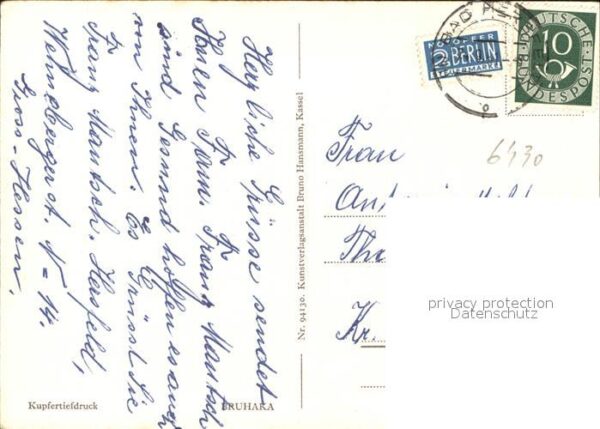 Herzliche Grüsse sendet
Ihnen Fam. Franz Mautsch
Wir sind Gesund hoffen es auch
von Ihnen. Es Grüsst Sie
Fr. Franz Mautsch. Hersfeld,
Weinbergerst. N-14.
Gross-Hessen.
Nr. 94130. Kunstverlagsanstalt Bruno Hansmann, Kassel
Kupfertiefdruck
BRUHAKA
NOTOPFER
2 BERLIN
STEUERMARKE
BAD HER
DEUTSCHE
10
BUNDESPOST
6430
Frau
Kr.
privacy protection
Datenschutz